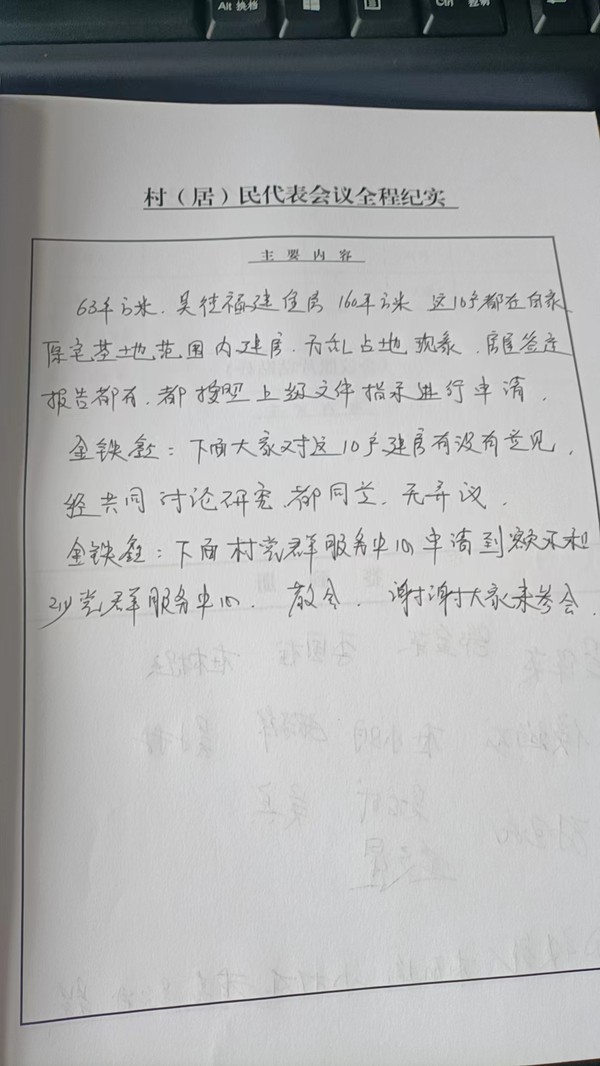 Alt 换档
Ctrl 复制
村（居）民代表会议全程纪实
主要内容
63平方米. 吴 福建住房 160平方米 这10户都在自家
原宅基地范围内建房. 无乱占地现象. 房屋鉴定
报告都有. 都按照上级文件指示进行申请.
金铁 : 下面大家对这10户建房有没有意见.
经共同讨论研究 都同意. 无异议.
金铁 : 下面村党群服务中心申请到
党群服务中心. 散会. 谢谢大家来参会.